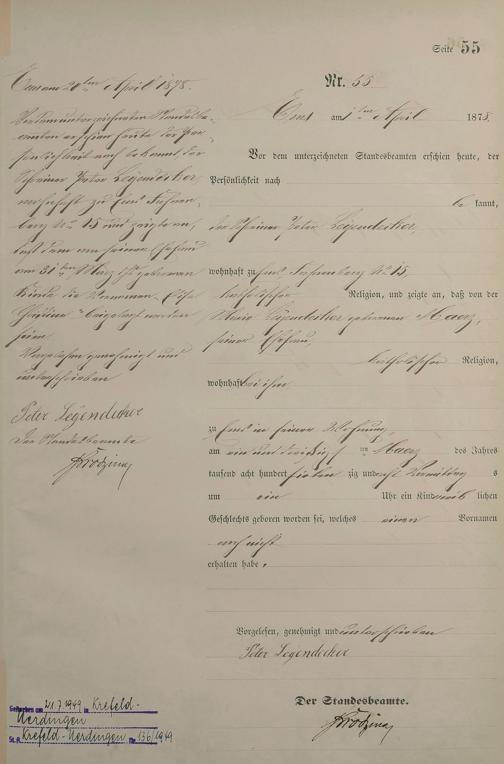 Seite 55
Ems am 20ten April 1878.
Vor dem unterzeichneten Standesbe-
amten erschien heute der Per-
sönlichkeit nach bekannt, der
Schreiner Peter Legendecker,
wohnhaft zu Ems
No 15 und zeigte an,
daß dem von seiner Ehefrau
am 31ten März geborenen
Kinde die Vornamen
beigelegt worden
seien
Vorgelesen genehmigt und
unterschrieben
Peter Legendecker
Der Standesbeamte
Nr. 55
Ems am 1ten April 1878.
Vor dem unterzeichneten Standesbeamten erschien heute, der
Persönlichkeit nach
be kannt,
der Schreiner Peter Legendecker,
wohnhaft zu Ems No 15,
katholischer Religion, und zeigte an, daß von der
Maria Legendecker geborenen Maerz,
seiner Ehefrau,
katholischer Religion,
wohnhaft bei ihm
zu Ems in seiner Wohnung,
am ein und dreißigsten Maerz des Jahres
tausend acht hundert siebenzig und acht Vormittags
um ein Uhr ein Kind weiblichen
Geschlechts geboren worden sei, welches einen Vornamen
noch nicht
erhalten habe.
Vorgelesen, genehmigt und unterschrieben
Peter Legendecker
Der Standesbeamte.
Gestorben am 21.7.1949 in Krefeld-
Uerdingen
St.A. Krefeld-Uerdingen Nr. 136/1949